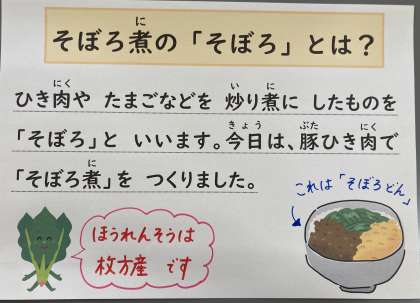 そぼろ煮の「そぼろ」とは？
ひき肉や たまごなどを 炒り煮に したものを
「そぼろ」と いいます。今日は、豚ひき肉で
「そぼろ煮」を つくりました。
これは「そぼろどん」
ほうれんそうは
枚方産 です